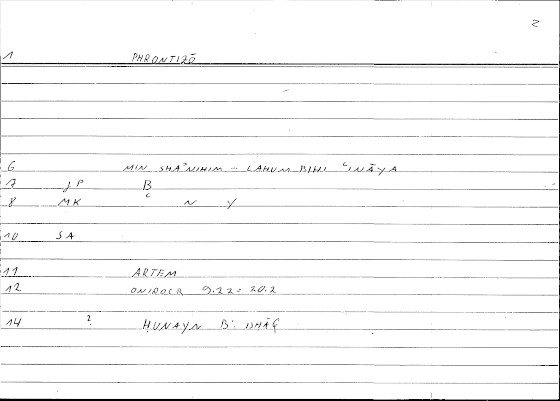 2
1 PHRONTIZŌ
6 MIN SHAʾNIHIM - LAHUM BIHI ʿINĀYA
7 JP B
8 MK C N Y
10 SA
11 ARTEM
12 ONIROCR 9.22 = 20.2
14 ? ḤUNAYN B. ISḤĀQ